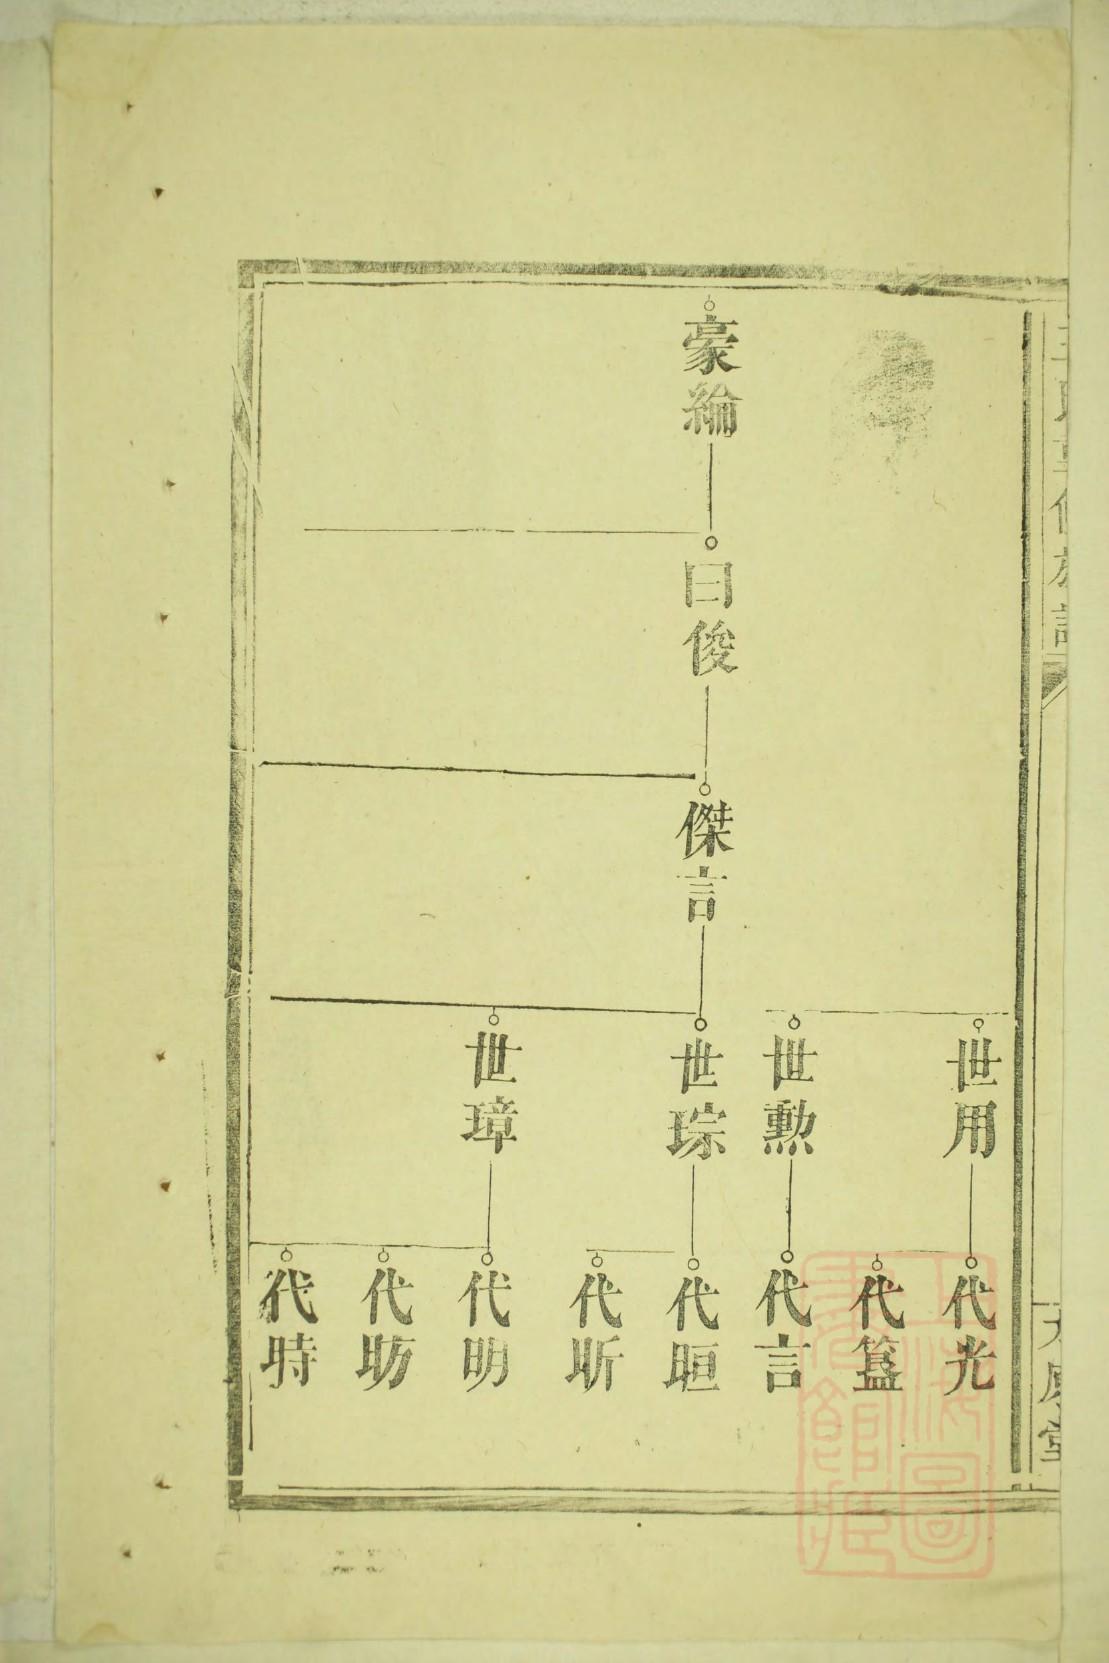 豪綸
曰俊
傑言
世用
世勲
世琮
世璋
代光
代簋
代言
代晅
代昕
代明
代昉
代時
上海圖書館藏